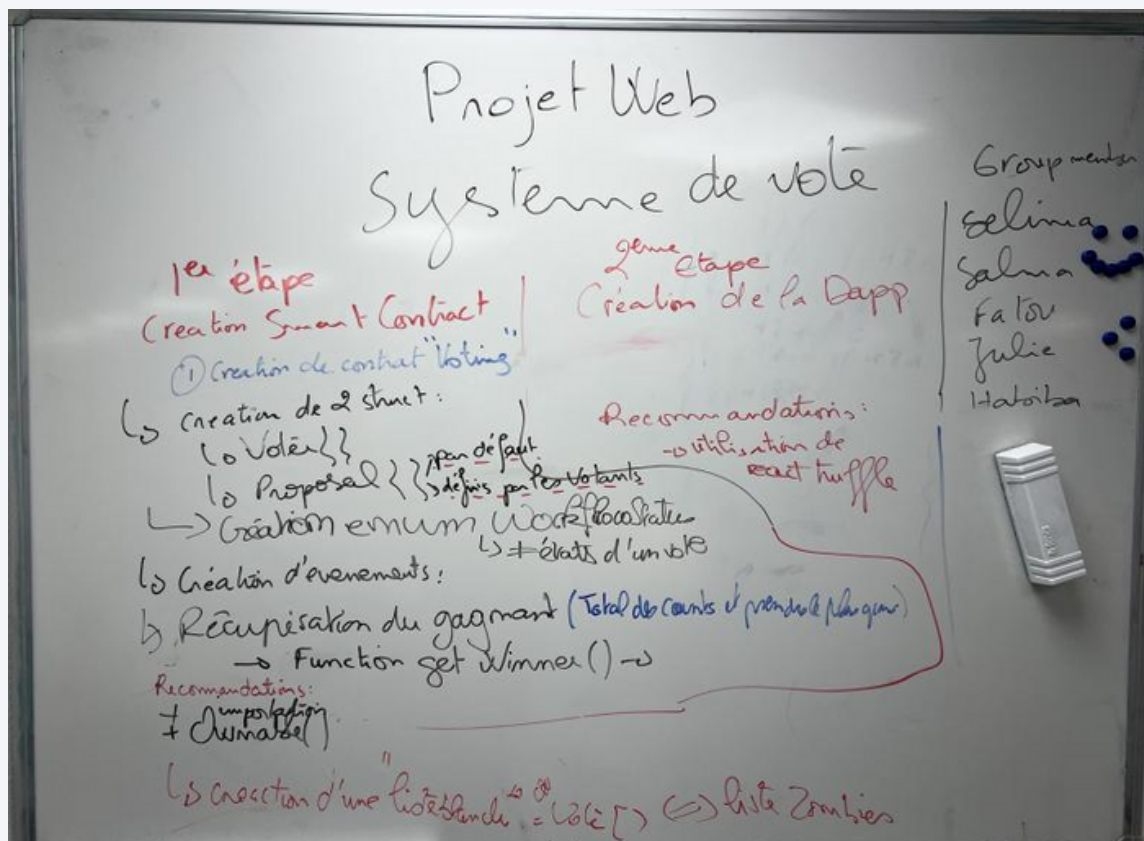 Projet Web
Système de vote
1er étape
Creation Smart Contract
① Creation de contrat "Voting"
↳ Creation de 2 struct:
↳ Voter {}
↳ Proposal {} par défaut
définis par les votants
↳ Création enum WorkflowStatus
↳ ≠ états d'un vote
↳ Création d'evenements:
↳ Récupération du gagnant (Total des counts prendre le plus
→ Function get Winner() →
Recommandations:
+ importation
+ Ownable()
↳ creaction d'une "liste blanche" = Vote[] ⇔ liste Zombies
2ème étape
Création de la Dapp
Recommandations:
→ utilisation de
react truffle
Group member
Selima
Salma
Fatou
Julie